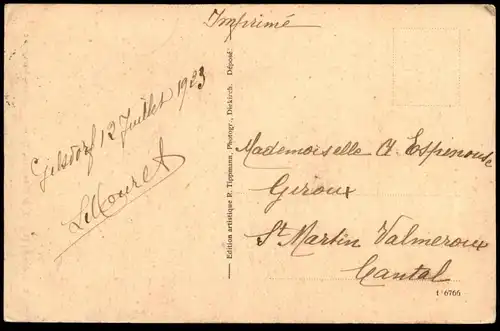 Imprimé
Gilsdorf 12 Juillet 1923
Edition artistique R. Tippmann, Photogr., Diekirch. Déposé
Mademoiselle A. Espinouse
Giroux
St Martin Valmeroux
Cantal
6766